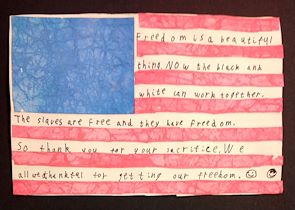 Freedom is a beautiful
thing. NOW the black and
white can work together.
The slaves are free and they have freedom.
So thank you for your sacrifice. We
all we thankful for getting our freehom.